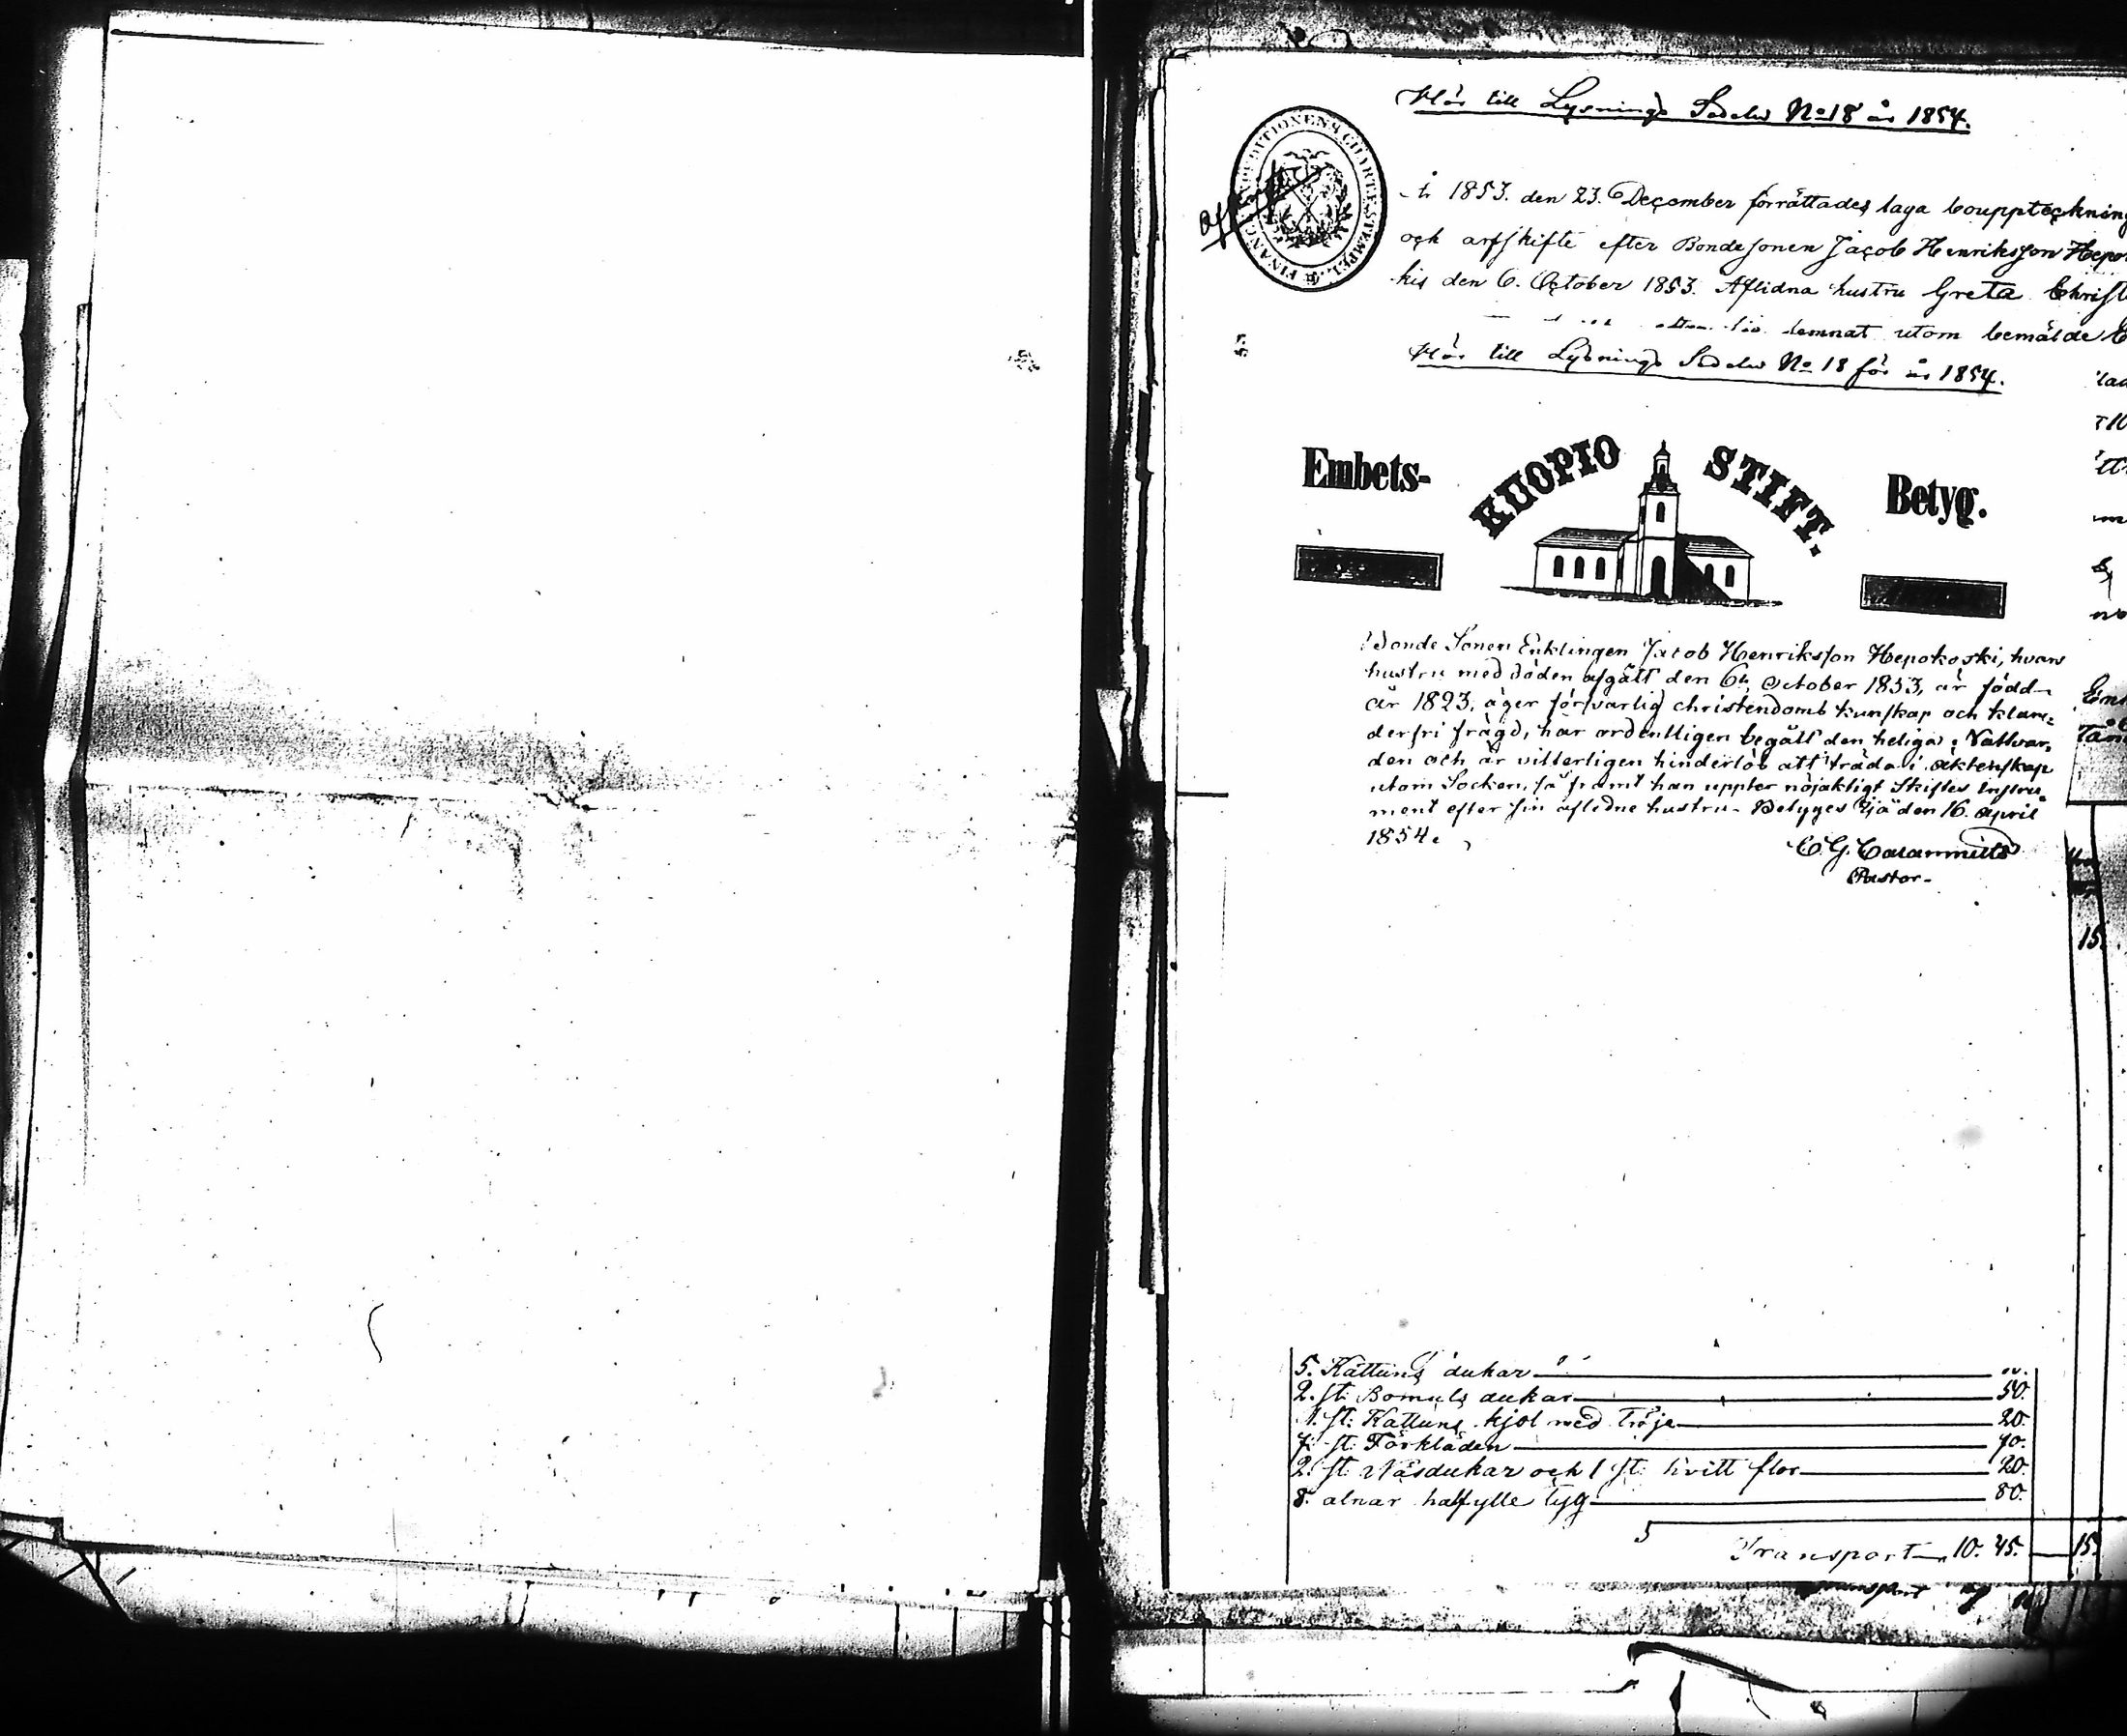 Hör till Lysnings Sedeln No 18 år 1854.
År 1853. den 23. December förrättades laga bouppteckning
och arfskifte efter Bondesonen Jacob Henriksson Hepo
kis den 6. October 1853. Aflidna hustru Greta Christ
lemnat utom bemälde
Hör till Lysnings Sedeln No 18 för år 1854.
Embets- KUOPIO STIFT. Betyg.
Bonde Sonen Enklingen Jacob Henriksson Hepokoski, hvars
hustru med döden afgått den 6te October 1853, är född
år 1823, äger försvarlig christendoms kunskap och klan=
derfri frägd, har ordentligen begått den heliga Nattvar=
den och är vitterligen hinderlös att träda i äktenskap
utom Socken, så framt han uppter nöjaktigt Skiftes Instru=
ment efter sin aflidne hustru. Betyges den 16. April
1854.
Pastor.
5. Kattuns dukar
2. st: Bomuls dukar 50.
1. st: Kattuns kjol med tröja 20.
7. st: Förkläden 70.
2. st. Näsdukar och 1 st: hvitt flor 20.
8. alnar halfylle tyg 80.
Transport 10. 45. 15.